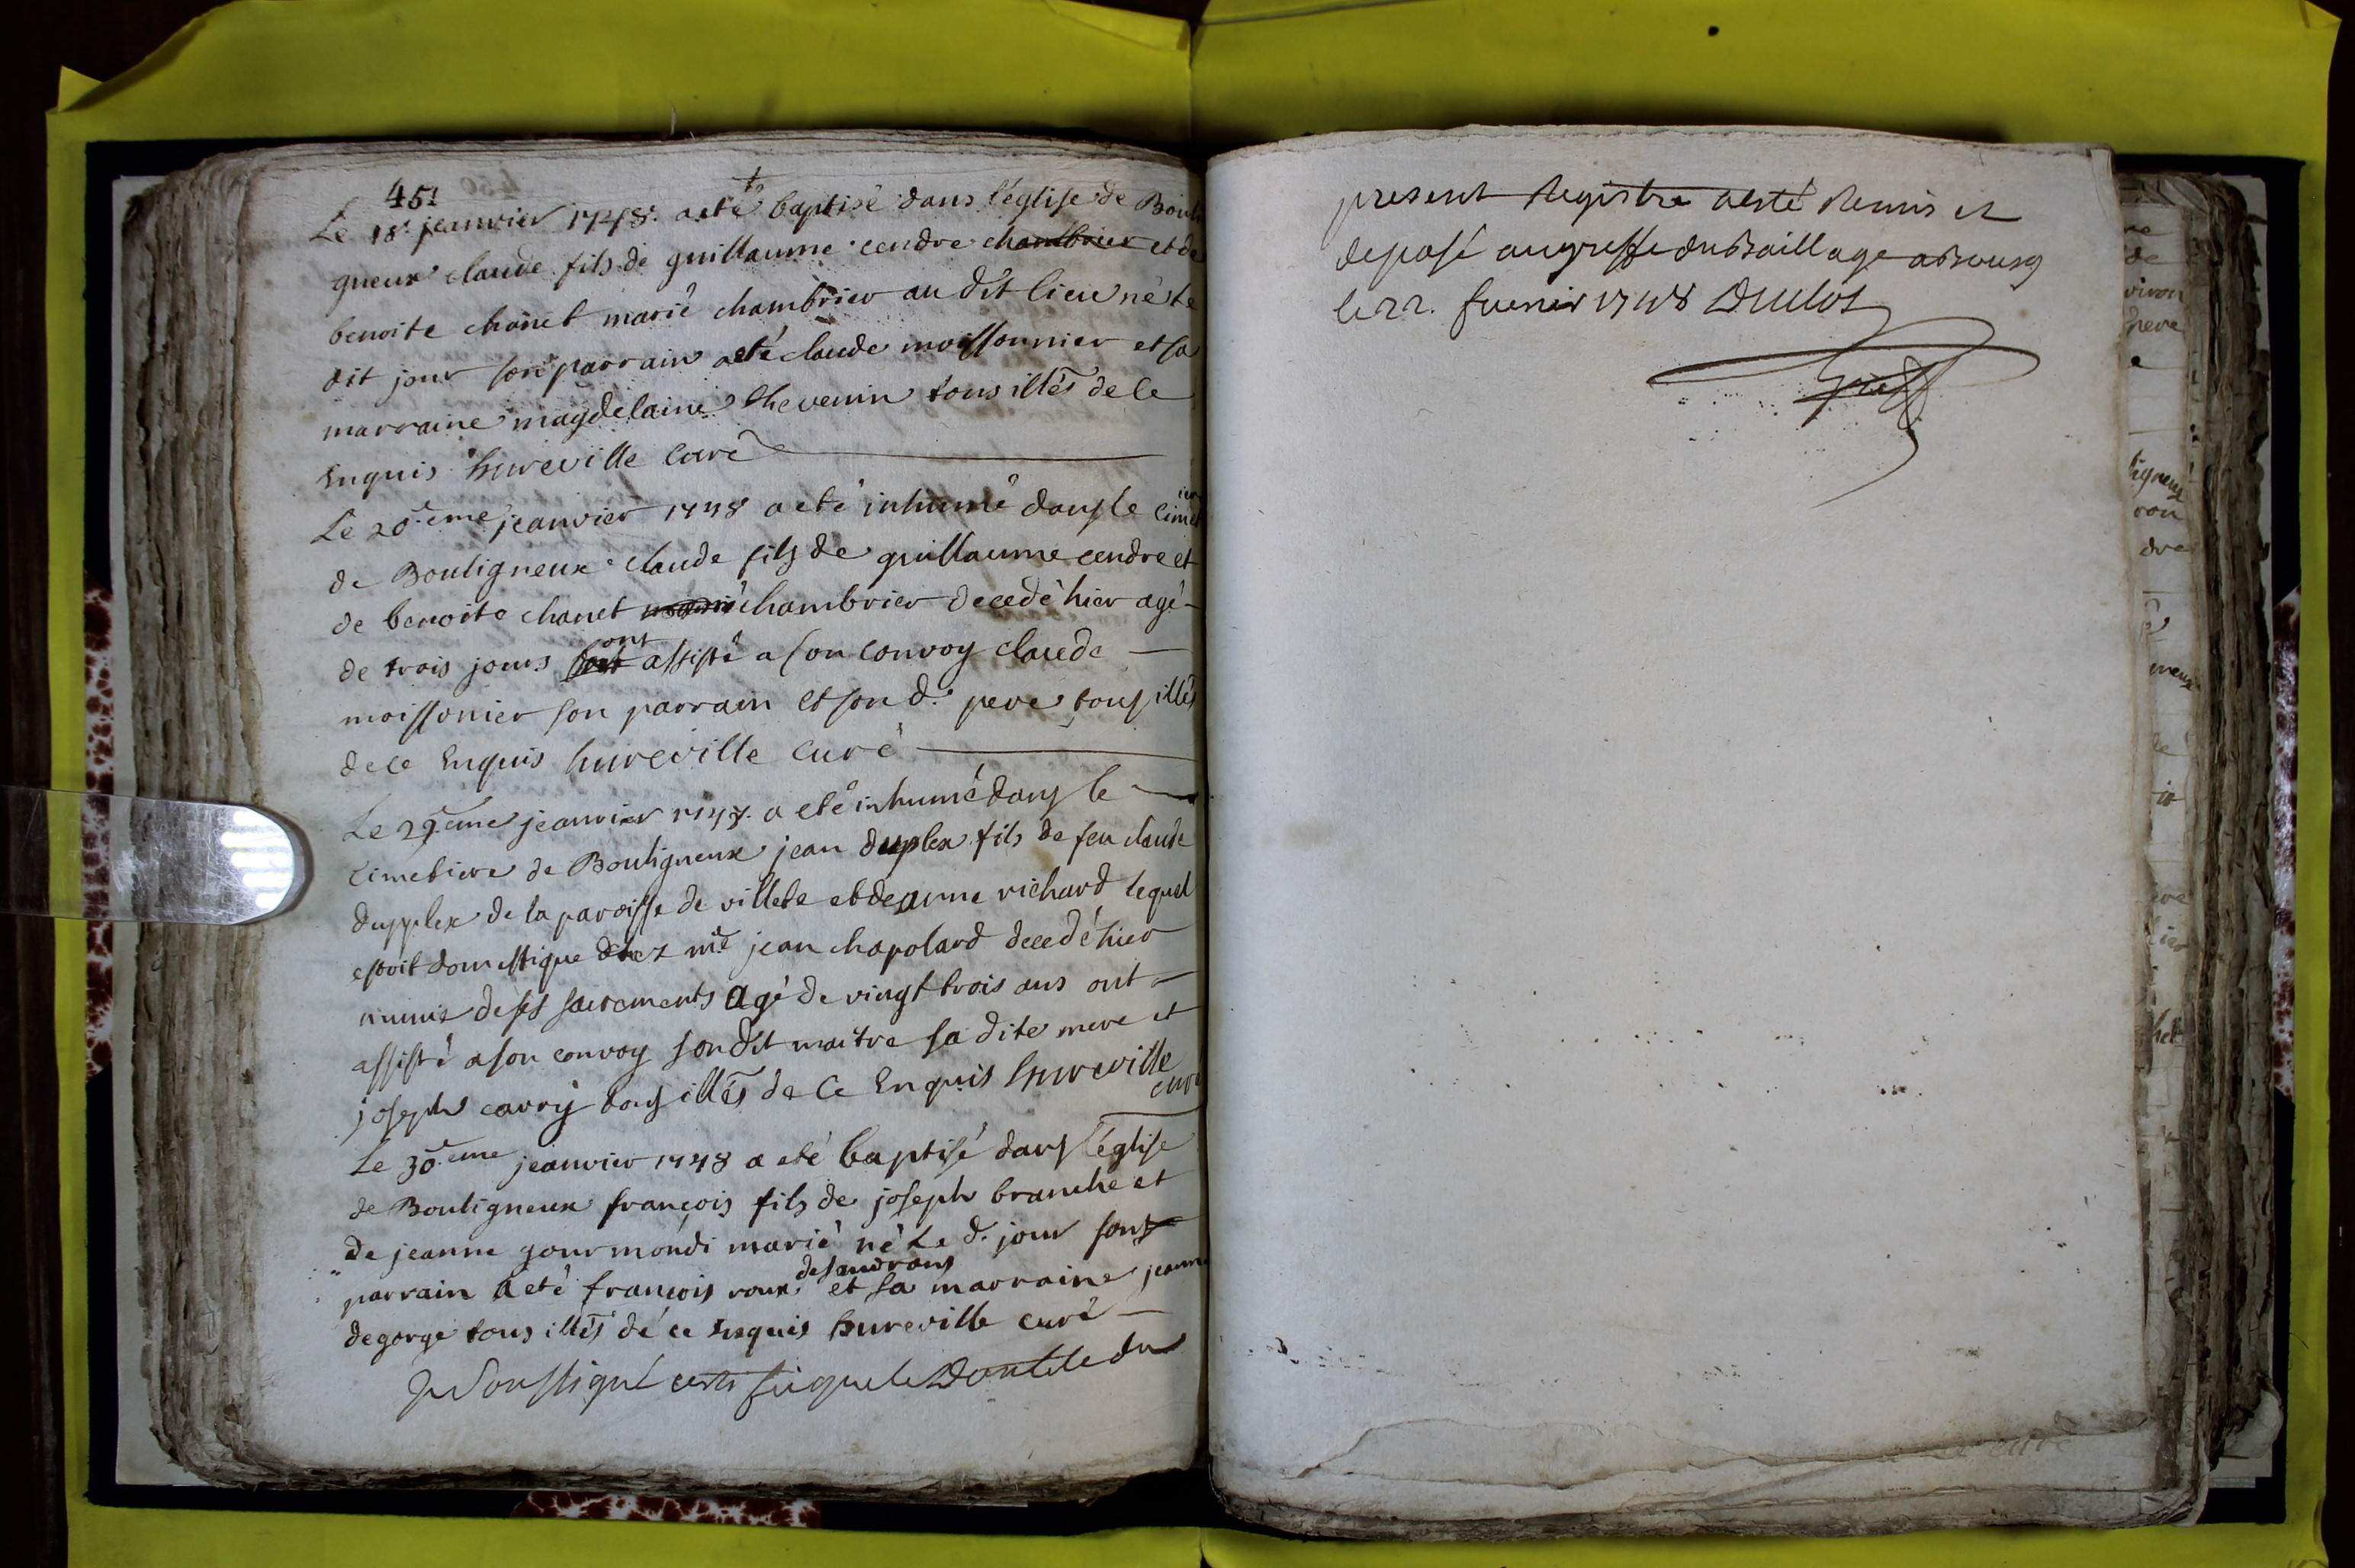 451
Le 18. jeanvier 1748. a eté baptisé dans l'église de Bouli
gneux claude fils de guillaume cendre chambrier et de
benoite chanet marié chambrier au dit lieu né le
dit jour son parrain a eté claude moissonnier et sa
marraine magdelaine thevenin tous illés de ce
Enquis hureville Curé
Le 20.eme jeanvier 1748 a eté inhumé dans le
de Bouligneux claude fils de guillaume cendre et
de benoite chanet marié chambrier decedé hier agé
de trois jours sont ont assisté a son convoy claude
moissonier son parrain et son d. pere tous illés
de ce Enquis hureville curé
Le 29.eme jeanvier 1748. a eté inhumé dans le
cimetiere de Bouligneux jean duplex fils de feu claude
dupplex de la paroisse de villete et de anne richard lequel
estoit domestique chez me jean chapolard decedé hier
munis de ses sacrements agé de vingt trois ans ont
assisté a son convoy son dit maitre sa dite mere et
joseph carry tous illés de ce Enquis hureville
curé
Le 30.eme jeanvier 1748 a eté baptisé dans l'église
de Bouligneux françois fils de joseph branche et
de jeanne gourmondi marié né le d. jour son
parrain a eté françois roux, desandrans et sa marraine jeanne
degorge tous illés de ce Enquis hureville curé
Je Soussigné certifie que le Double du
present Registre a esté Remis et
deposé au greffe du Baillage a Bourg
le 22. fuerier 1748 Duclos
Greff